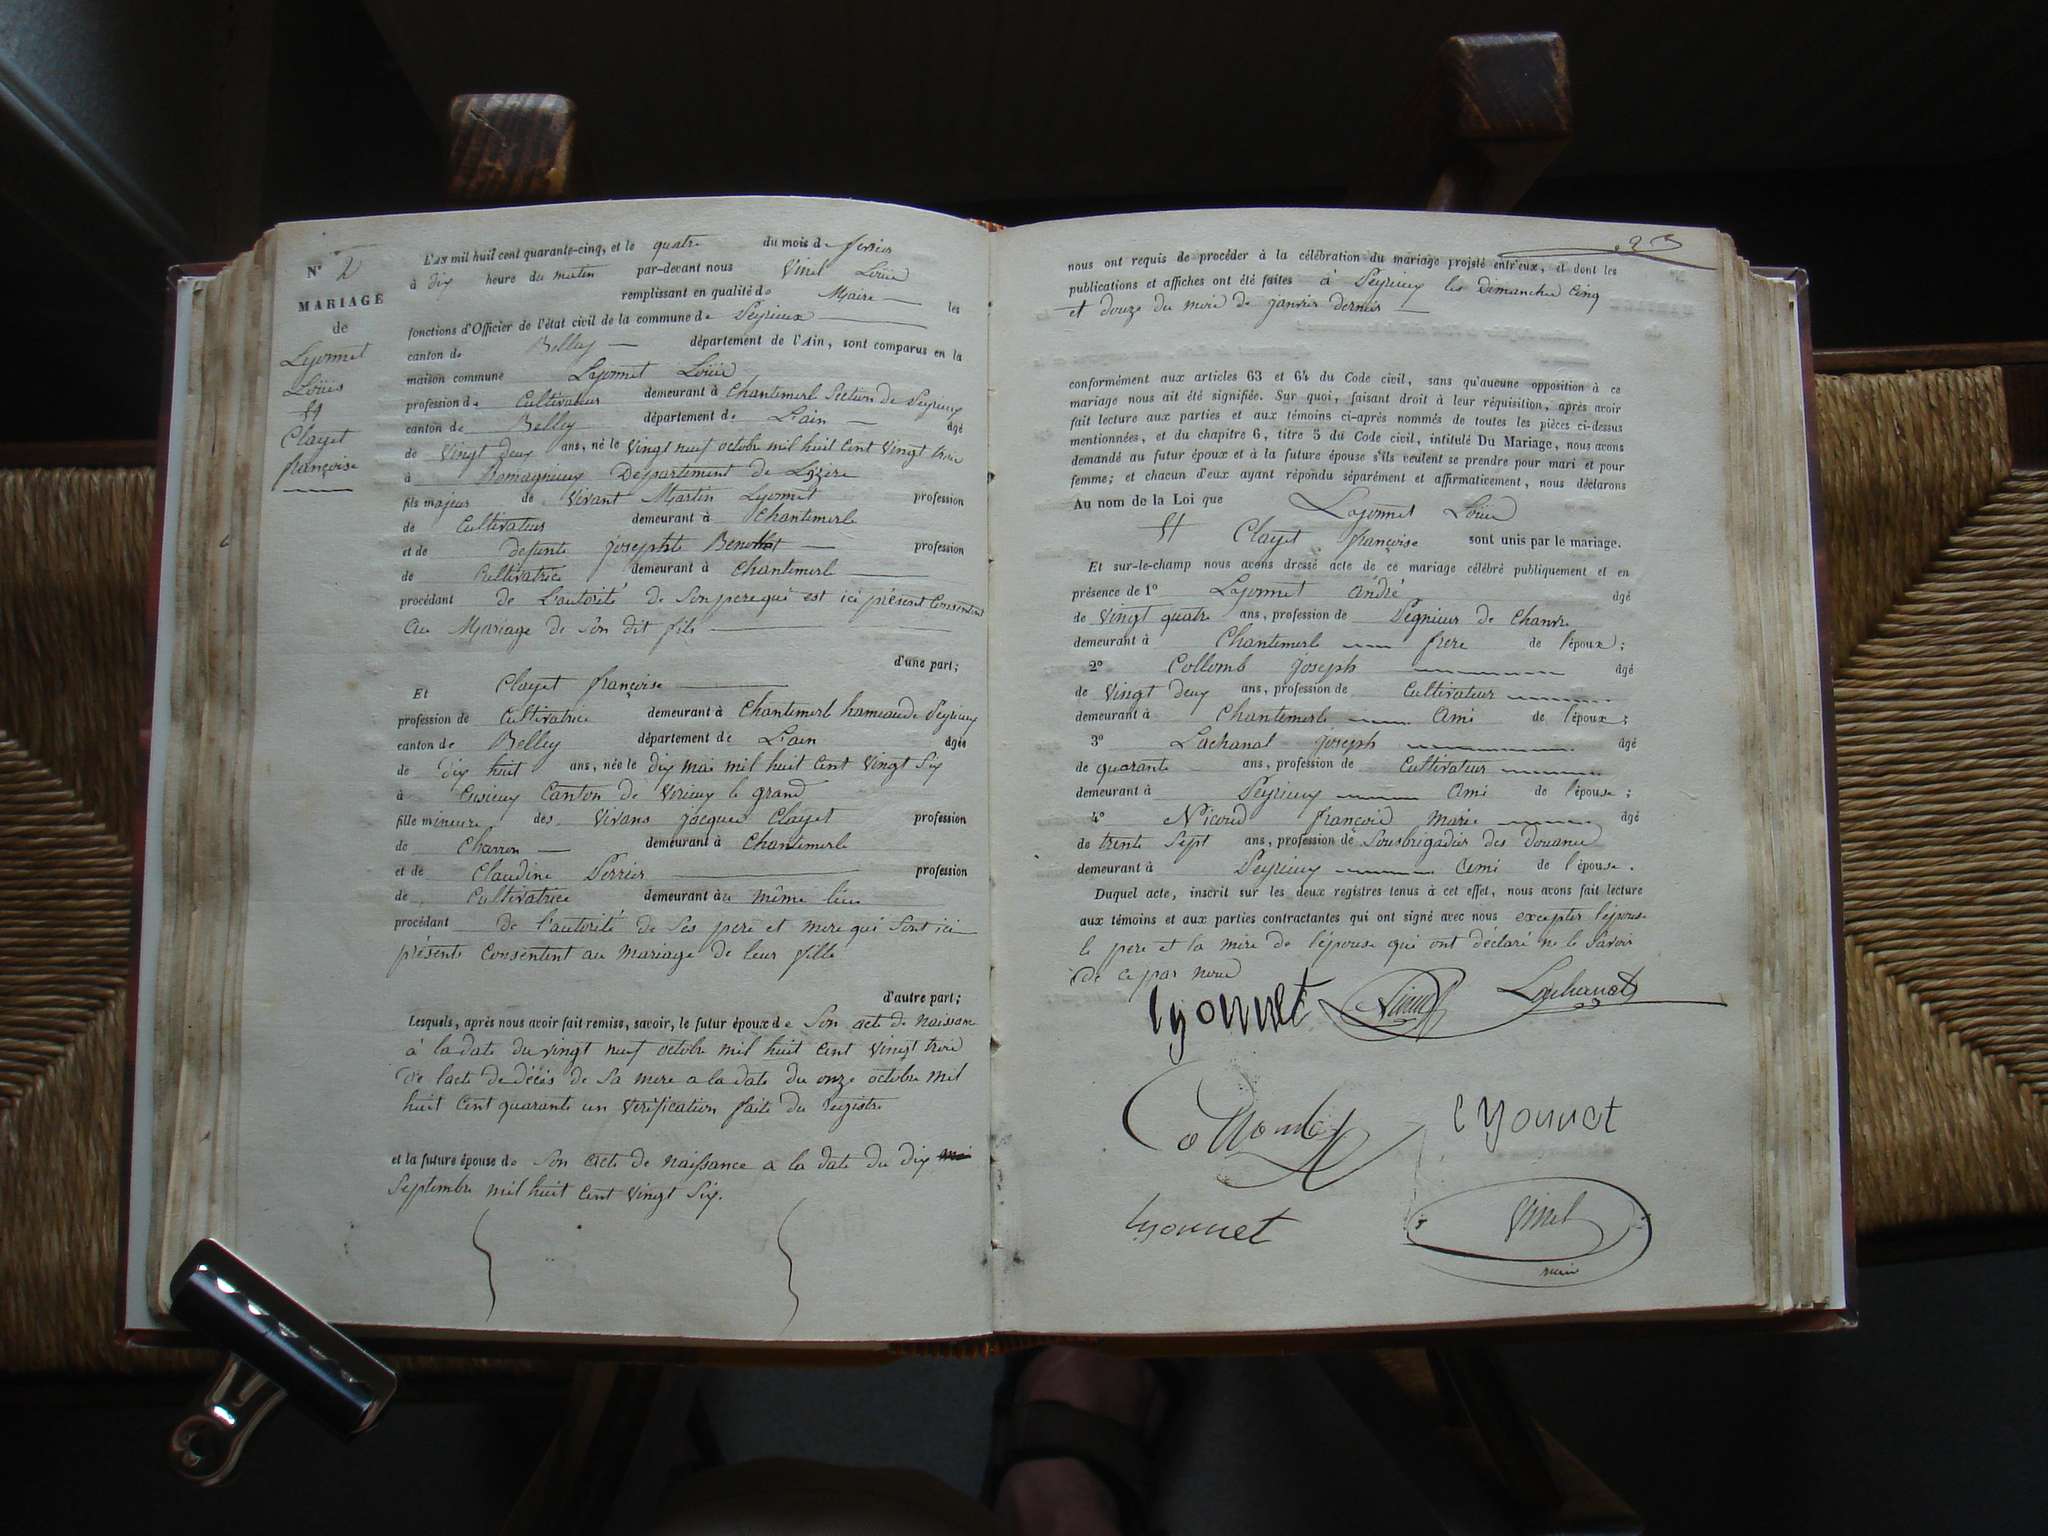 N° 2
MARIAGE
de
Lyonnet
Loüis
Et
Clayet
françoise
L'AN mil huit cent quarante-cinq, et le quatre du mois de fevrier
à dix heure du matin par-devant nous Vinel Loüis
remplissant en qualité de Maire les
fonctions d'Officier de l'état civil de la commune de Peyrieux
canton de Belley département de l'Ain, sont comparus en la
maison commune Lyonnet Loüis
profession de Cultivateur demeurant à Chantemerle Section de Peyrieux
canton de Belley département de L'ain âgé
de Vingt deux ans, né le Vingt neuf octobre mil huit Cent Vingt trois
à Romagnieux Département de L'izère
fils majeur de Vivant Martin Lyonnet profession
de Cultivateur demeurant à Chantemerle
et de defunte Josephte Benoit profession
de Cultivatrice demeurant à Chantemerle
procédant de L'autorité de Son pere qui est ici présent Consentant
Au Mariage de Son dit fils
d'une part;
Et Clayet françoise
profession de Cultivatrice demeurant à Chantemerle hameau de Peyrieux
canton de Belley département de L'ain âgée
de dix huit ans, née le dix mai mil huit Cent Vingt Six
à Cuzieux Canton de Virieux le grand
fille mineure des Vivans jacques Clayet profession
de Charron demeurant à Chantemerle
et de Claudine Perrier profession
de Cultivatrice demeurant au même lieu
procédant de l'autorité de Ses pere et mere qui Sont ici
présents Consentent au Mariage de leur fille
d'autre part;
Lesquels, après nous avoir fait remise, savoir, le futur époux de Son acte de Naissance
à la date du vingt neuf octobre mil huit Cent Vingt trois
De l'acte de décès de Sa mere a la date du onze octobre mil
huit Cent quarante un Verification faite du registre
et la future épouse de Son acte de Naissance a la date du dix mai
Septembre mil huit Cent Vingt Six.
23
nous ont requis de procéder à la célébration du mariage projeté entr'eux, et dont les
publications et affiches ont été faites à Peyrieux les Dimanches Cinq
et douze du mois de janvier dernier
conformément aux articles 63 et 64 du Code civil, sans qu'aucune opposition à ce
mariage nous ait été signifiée. Sur quoi, faisant droit à leur réquisition, après avoir
fait lecture aux parties et aux témoins ci-après nommés de toutes les pièces ci-dessus
mentionnées, et du chapitre 6, titre 5 du Code civil, intitulé Du Mariage, nous avons
demandé au futur époux et à la future épouse s'ils veulent se prendre pour mari et pour
femme; et chacun d'eux ayant répondu séparément et affirmativement, nous déclarons
Au nom de la Loi que Lyonnet Loüis
Et Clayet françoise sont unis par le mariage.
Et sur-le-champ nous avons dressé acte de ce mariage célébré publiquement et en
présence de 1° Lyonnet André âgé
de Vingt quatre ans, profession de Pegnieur de Chanvre
demeurant à Chantemerle frere de l'époux;
2° Collomb joseph âgé
de Vingt deux ans, profession de Cultivateur
demeurant à Chantemerle Ami de l'époux;
3° Lachanal joseph âgé
de quarante ans, profession de Cultivateur
demeurant à Peyrieux Ami de l'épouse;
4° Nicoud françois Marie âgé
de trente Sept ans, profession de Sousbrigadier des Douanes
demeurant à Peyrieux Ami de l'épouse.
Duquel acte, inscrit sur les deux registres tenus à cet effet, nous avons fait lecture
aux témoins et aux parties contractantes qui ont signé avec nous excepter l'épouse
le pere et la mere de l'épouse qui ont déclaré ne le Savoir
de ce par nous
Lyonnet Nicoud Lachanal
Collomb Lyonnet
Lyonnet Vinel
maire